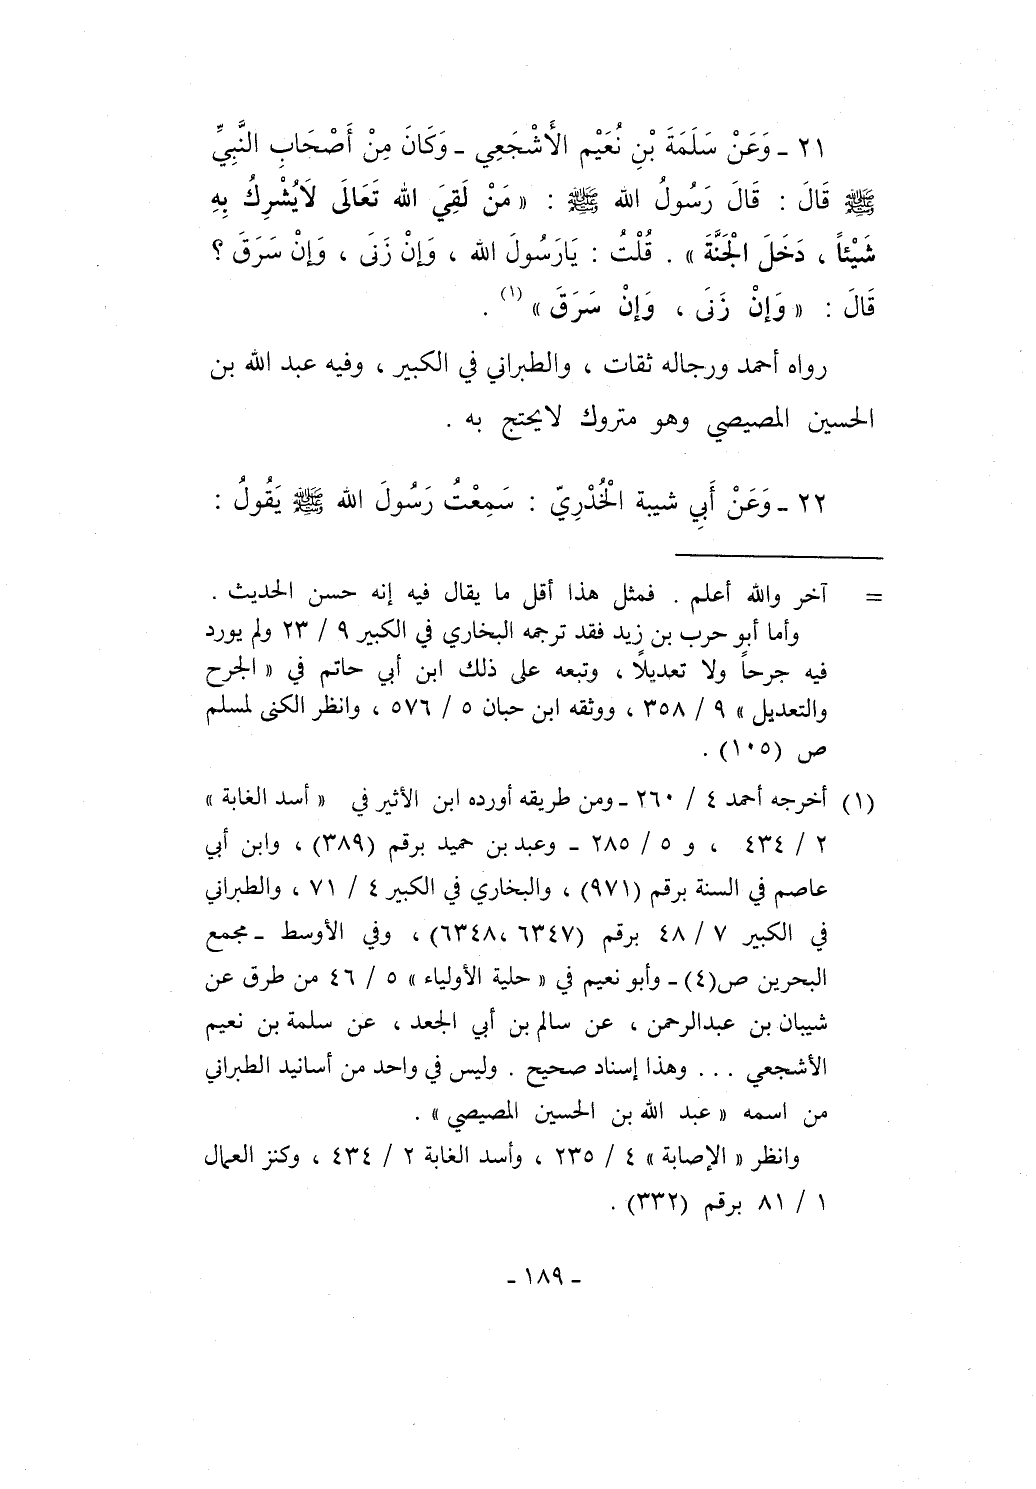 ٢١ ـ وَعَنْ سَلَمَةَ بْنِ نُعَيْمٍ الأَشْجَعِي ـ وَكَانَ مِنْ أَصْحَابِ النَّبِيِّ
ﷺ قَالَ : قَالَ رَسُولُ الله ﷺ : « مَنْ لَقِيَ الله تَعَالَى لَايُشْرِكُ بِهِ
شَيْئاً ، دَخَلَ الْجَنَّةَ » . قُلْتُ : يَارَسُولَ الله ، وَإِنْ زَنَى ، وَإِنْ سَرَقَ ؟
قَالَ : « وَإِنْ زَنَى ، وَإِنْ سَرَقَ » (١) .
رواه أحمد ورجاله ثقات ، والطبراني في الكبير ، وفيه عبد الله بن
الحسين المصيصي وهو متروك لايحتج به .
٢٢ ـ وَعَنْ أَبِي شيبة الْخُدْرِيّ : سَمِعْتُ رَسُولَ الله ﷺ يَقُولُ :
= آخر والله أعلم . فمثل هذا أقل ما يقال فيه إنه حسن الحديث .
وأما أبو حرب بن زيد فقد ترجمه البخاري في الكبير ٩ / ٢٣ ولم يورد
فيه جرحاً ولا تعديلًا ، وتبعه على ذلك ابن أبي حاتم في « الجرح
والتعديل » ٩ / ٣٥٨ ، ووثقه ابن حبان ٥ / ٥٧٦ ، وانظر الكنى لمسلم
ص (١٠٥) .
(١) أخرجه أحمد ٤ / ٢٦٠ ـ ومن طريقه أورده ابن الأثير في « أسد الغابة »
٢ / ٤٣٤ ، و ٥ / ٢٨٥ ـ وعبد بن حميد برقم (٣٨٩) ، وابن أبي
عاصم في السنة برقم (٩٧١) ، والبخاري في الكبير ٤ / ٧١ ، والطبراني
في الكبير ٧ / ٤٨ برقم (٦٣٤٧ ،٦٣٤٨) ، وفي الأوسط ـ مجمع
البحرين ص(٤) ـ وأبو نعيم في « حلية الأولياء » ٥ / ٤٦ من طرق عن
شيبان بن عبدالرحمن ، عن سالم بن أبي الجعد ، عن سلمة بن نعيم
الأشجعي . . . وهذا إسناد صحيح . وليس في واحد من أسانيد الطبراني
من اسمه « عبد الله بن الحسين المصيصي » .
وانظر « الإصابة » ٤ / ٢٣٥ ، وأسد الغابة ٢ / ٤٣٤ ، وكنز العمال
١ / ٨١ برقم (٣٣٢) .
ـ ١٨٩ ـ